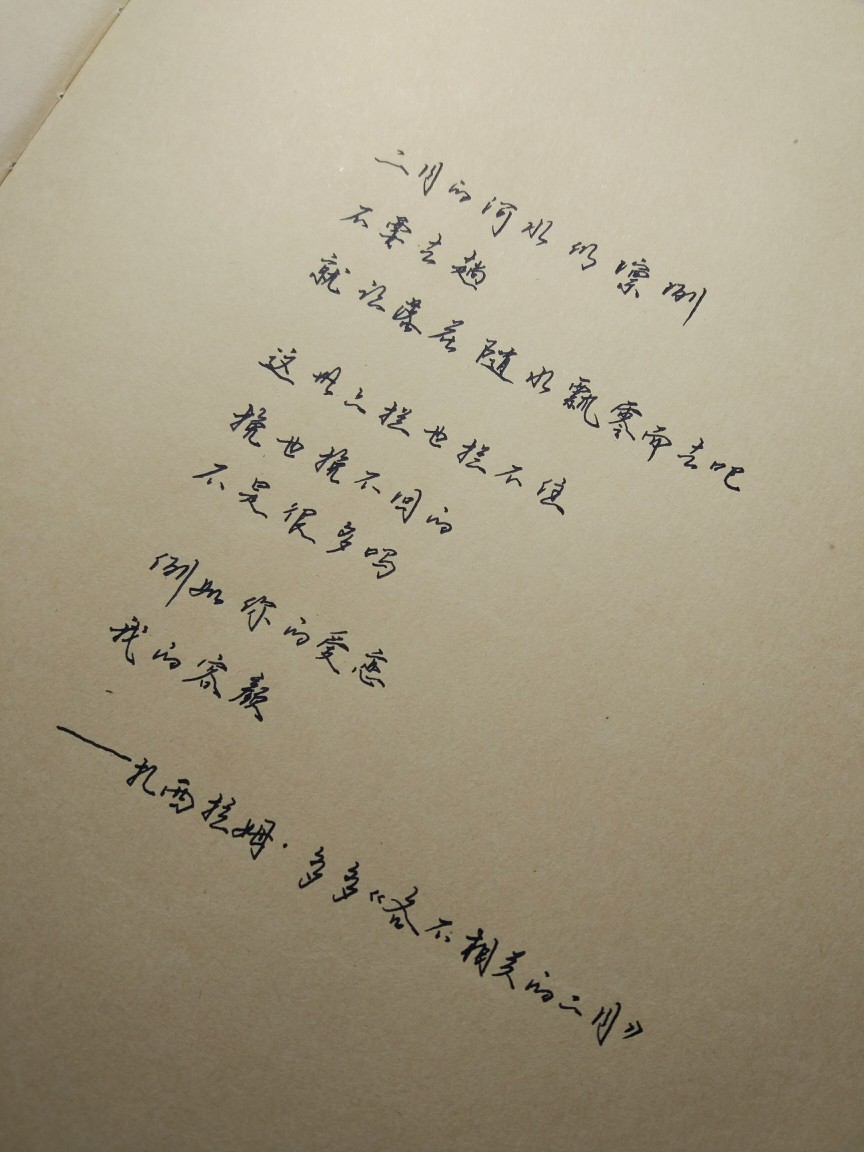 三月的河水仍凛冽
不要去趟
就让落花随水飘零而去吧
这世上拦也拦不住
挽也挽不回的
不是很多吗
例如你的爱恋
我的容颜
——扎西拉姆·多多《各不相关的三月》